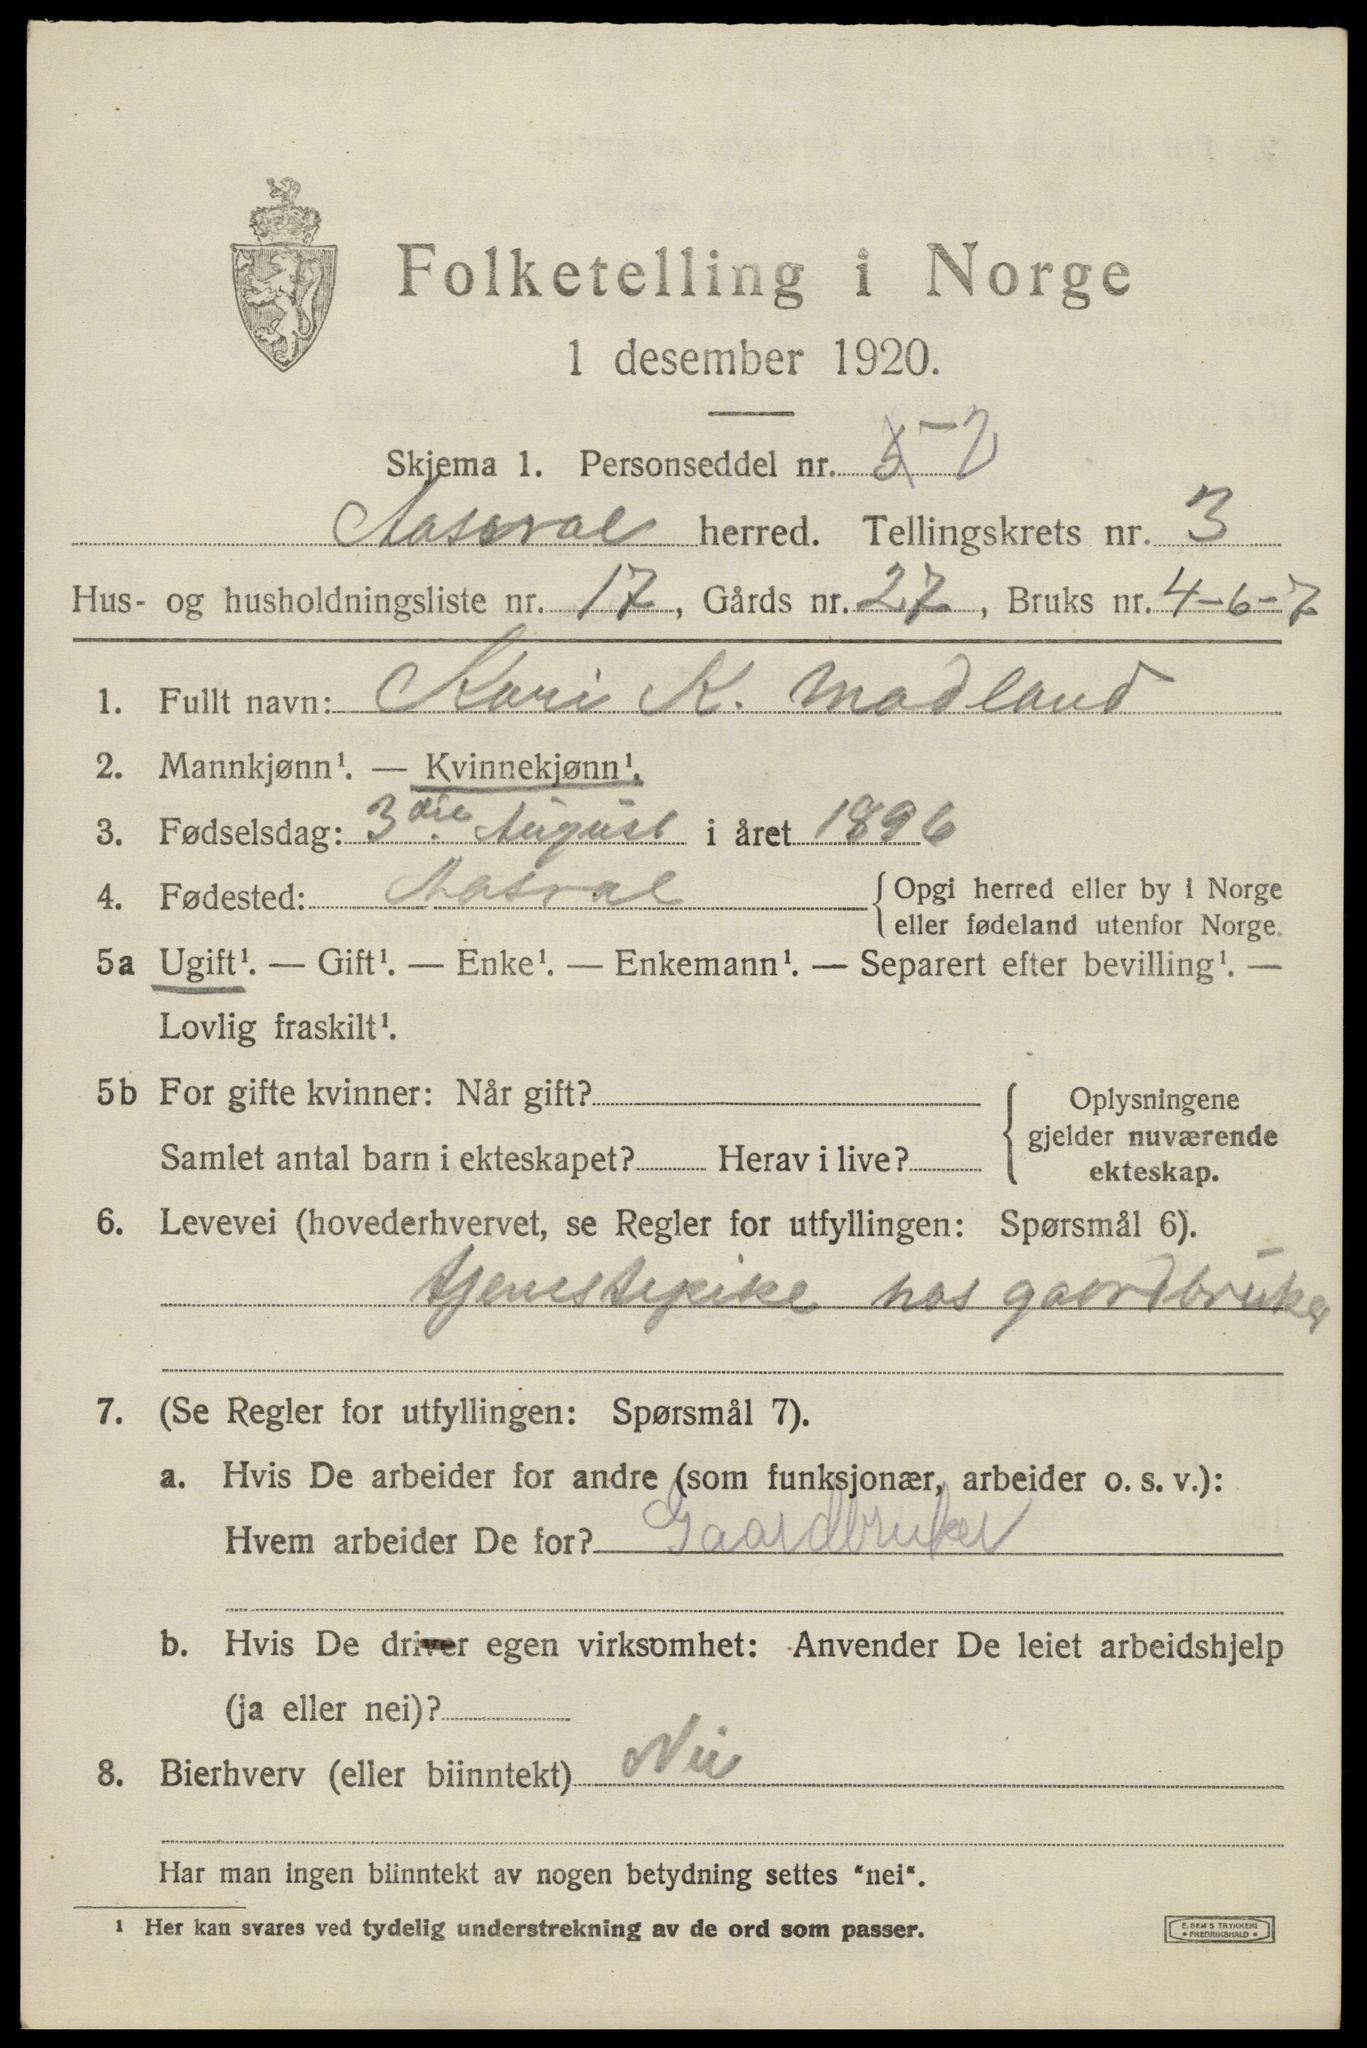 Folketelling i Norge
1 desember 1920.
Skjema 1. Personseddel nr. 5 - 2
Aaseral herred. Tellingskrets nr. 3
Hus- og husholdningsliste nr. 17, Gårds nr. 27, Bruks nr. 4-6-7
1. Fullt navn: Kari K. Madland
2. Mannkjønn¹. — Kvinnekjønn¹.
3. Fødselsdag: 3die August i året 1896
4. Fødested: Aasral {Opgi herred eller by i Norge
eller fødeland utenfor Norge.
5a Ugift¹. — Gift¹. — Enke¹. — Enkemann¹. — Separert efter bevilling¹. —
Lovlig fraskilt¹.
5b For gifte kvinner: Når gift?
Samlet antal barn i ekteskapet? Herav i live?
{Oplysningene
gjelder nuværende
ekteskap.
6. Levevei (hovederhvervet, se Regler for utfyllingen: Spørsmål 6).
tjenestepike hos gaardbruker
7. (Se Regler for utfyllingen: Spørsmål 7).
a. Hvis De arbeider for andre (som funksjonær, arbeider o. s. v.):
Hvem arbeider De for? Gaardbruker
b. Hvis De driver egen virksomhet: Anvender De leiet arbeidshjelp
(ja eller nei)?
8. Bierhverv (eller biinntekt) Nei
Har man ingen biinntekt av nogen betydning settes "nei".
¹ Her kan svares ved tydelig understrekning av de ord som passer.
E. SEM'S TRYKKERI
• FREDRIKSHALD •